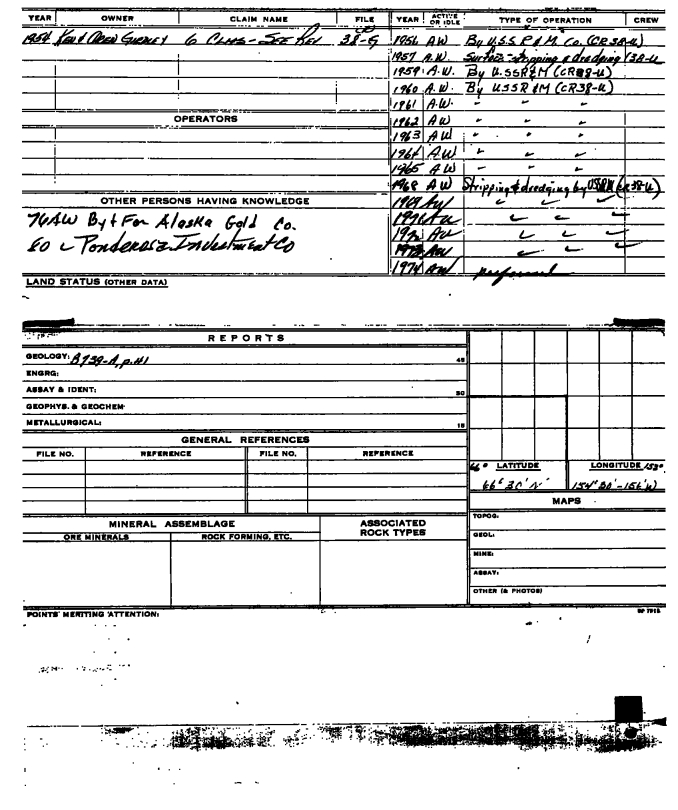 YEAR OWNER CLAIM NAME FILE YEAR ACTIVE OR IDLE TYPE OF OPERATION CREW
1954 Ken & Gurney 6 Clms - See Rev 38-G 1956 AW By U.S.S. R & M. Co. (CR 38-4)
1957 A.W. Surface stripping & dredging (38-4
1959 A.W. By U.SSR&M (CR38-4)
1960 A.W. By USSR&M (CR38-4)
1961 A.W. " " "
OPERATORS 1962 AW " " "
1963 AW " " "
1964 A.W " " "
1965 AW " " "
1968 AW Stripping & dredging by (CR 38-4)
OTHER PERSONS HAVING KNOWLEDGE 1969
76AW By & For Alaska Gold Co.
80 " Ponderosa Investment Co
1974 AW performed
LAND STATUS (OTHER DATA)
REPORTS
GEOLOGY: B739-A, p. 45
ENGRG:
ASSAY & IDENT: 30
GEOPHYS. & GEOCHEM
METALLURGICAL: 15
GENERAL REFERENCES
FILE NO. REFERENCE FILE NO. REFERENCE
66° LATITUDE LONGITUDE 153°
66° 30' N 154° 30' - 156' W
MAPS
MINERAL ASSEMBLAGE ASSOCIATED ROCK TYPES
ORE MINERALS ROCK FORMING, ETC.
TOPOG.
GEOL:
MINE:
ASSAY:
OTHER (& PHOTOS)
POINTS MERITING ATTENTION: